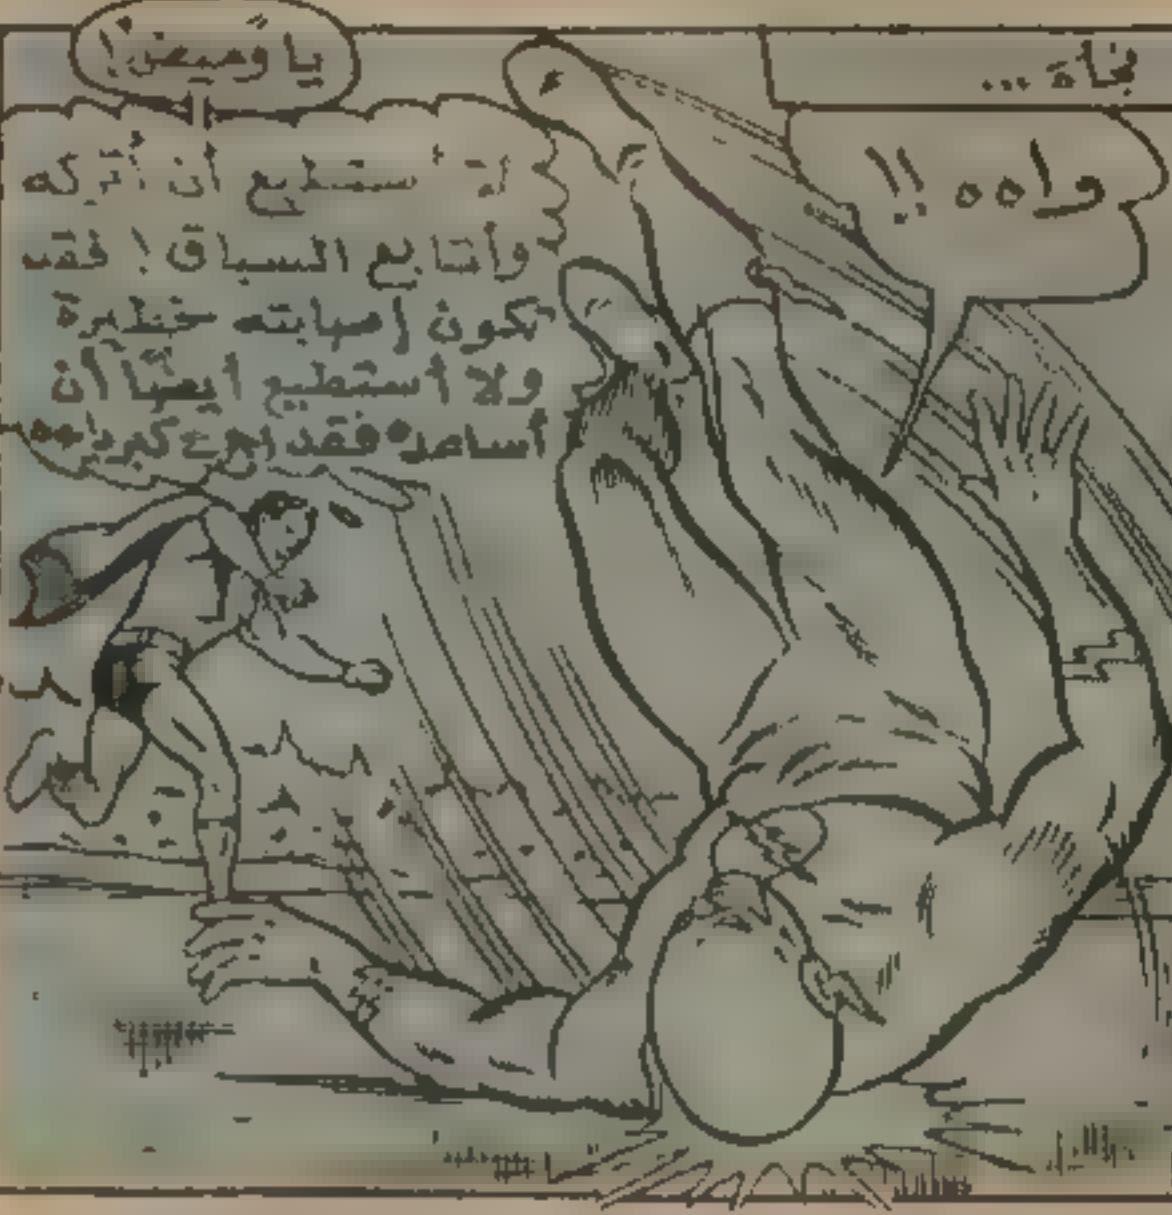 فجأة ...
واه ه !!
يا وميض !
لا أستطيع أن أتركه
وأتابع السباق ! فقد
تكون إصابته خطيرة
ولا أستطيع أيضاً أن
أساعده فقد